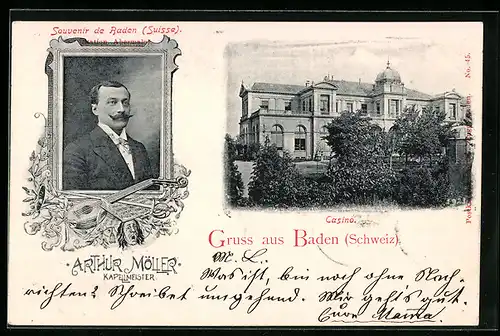 Souvenir de Baden (Suisse).
ARTHUR MÖLLER
KAPELLMEISTER.
Casino.
No. 45.
Gruss aus Baden (Schweiz).
M. L.:
Was ist, bin noch ohne Nach-
richten? Schreibet umgehend. Wie geht's? Mir geht's gut.
Eure Mama